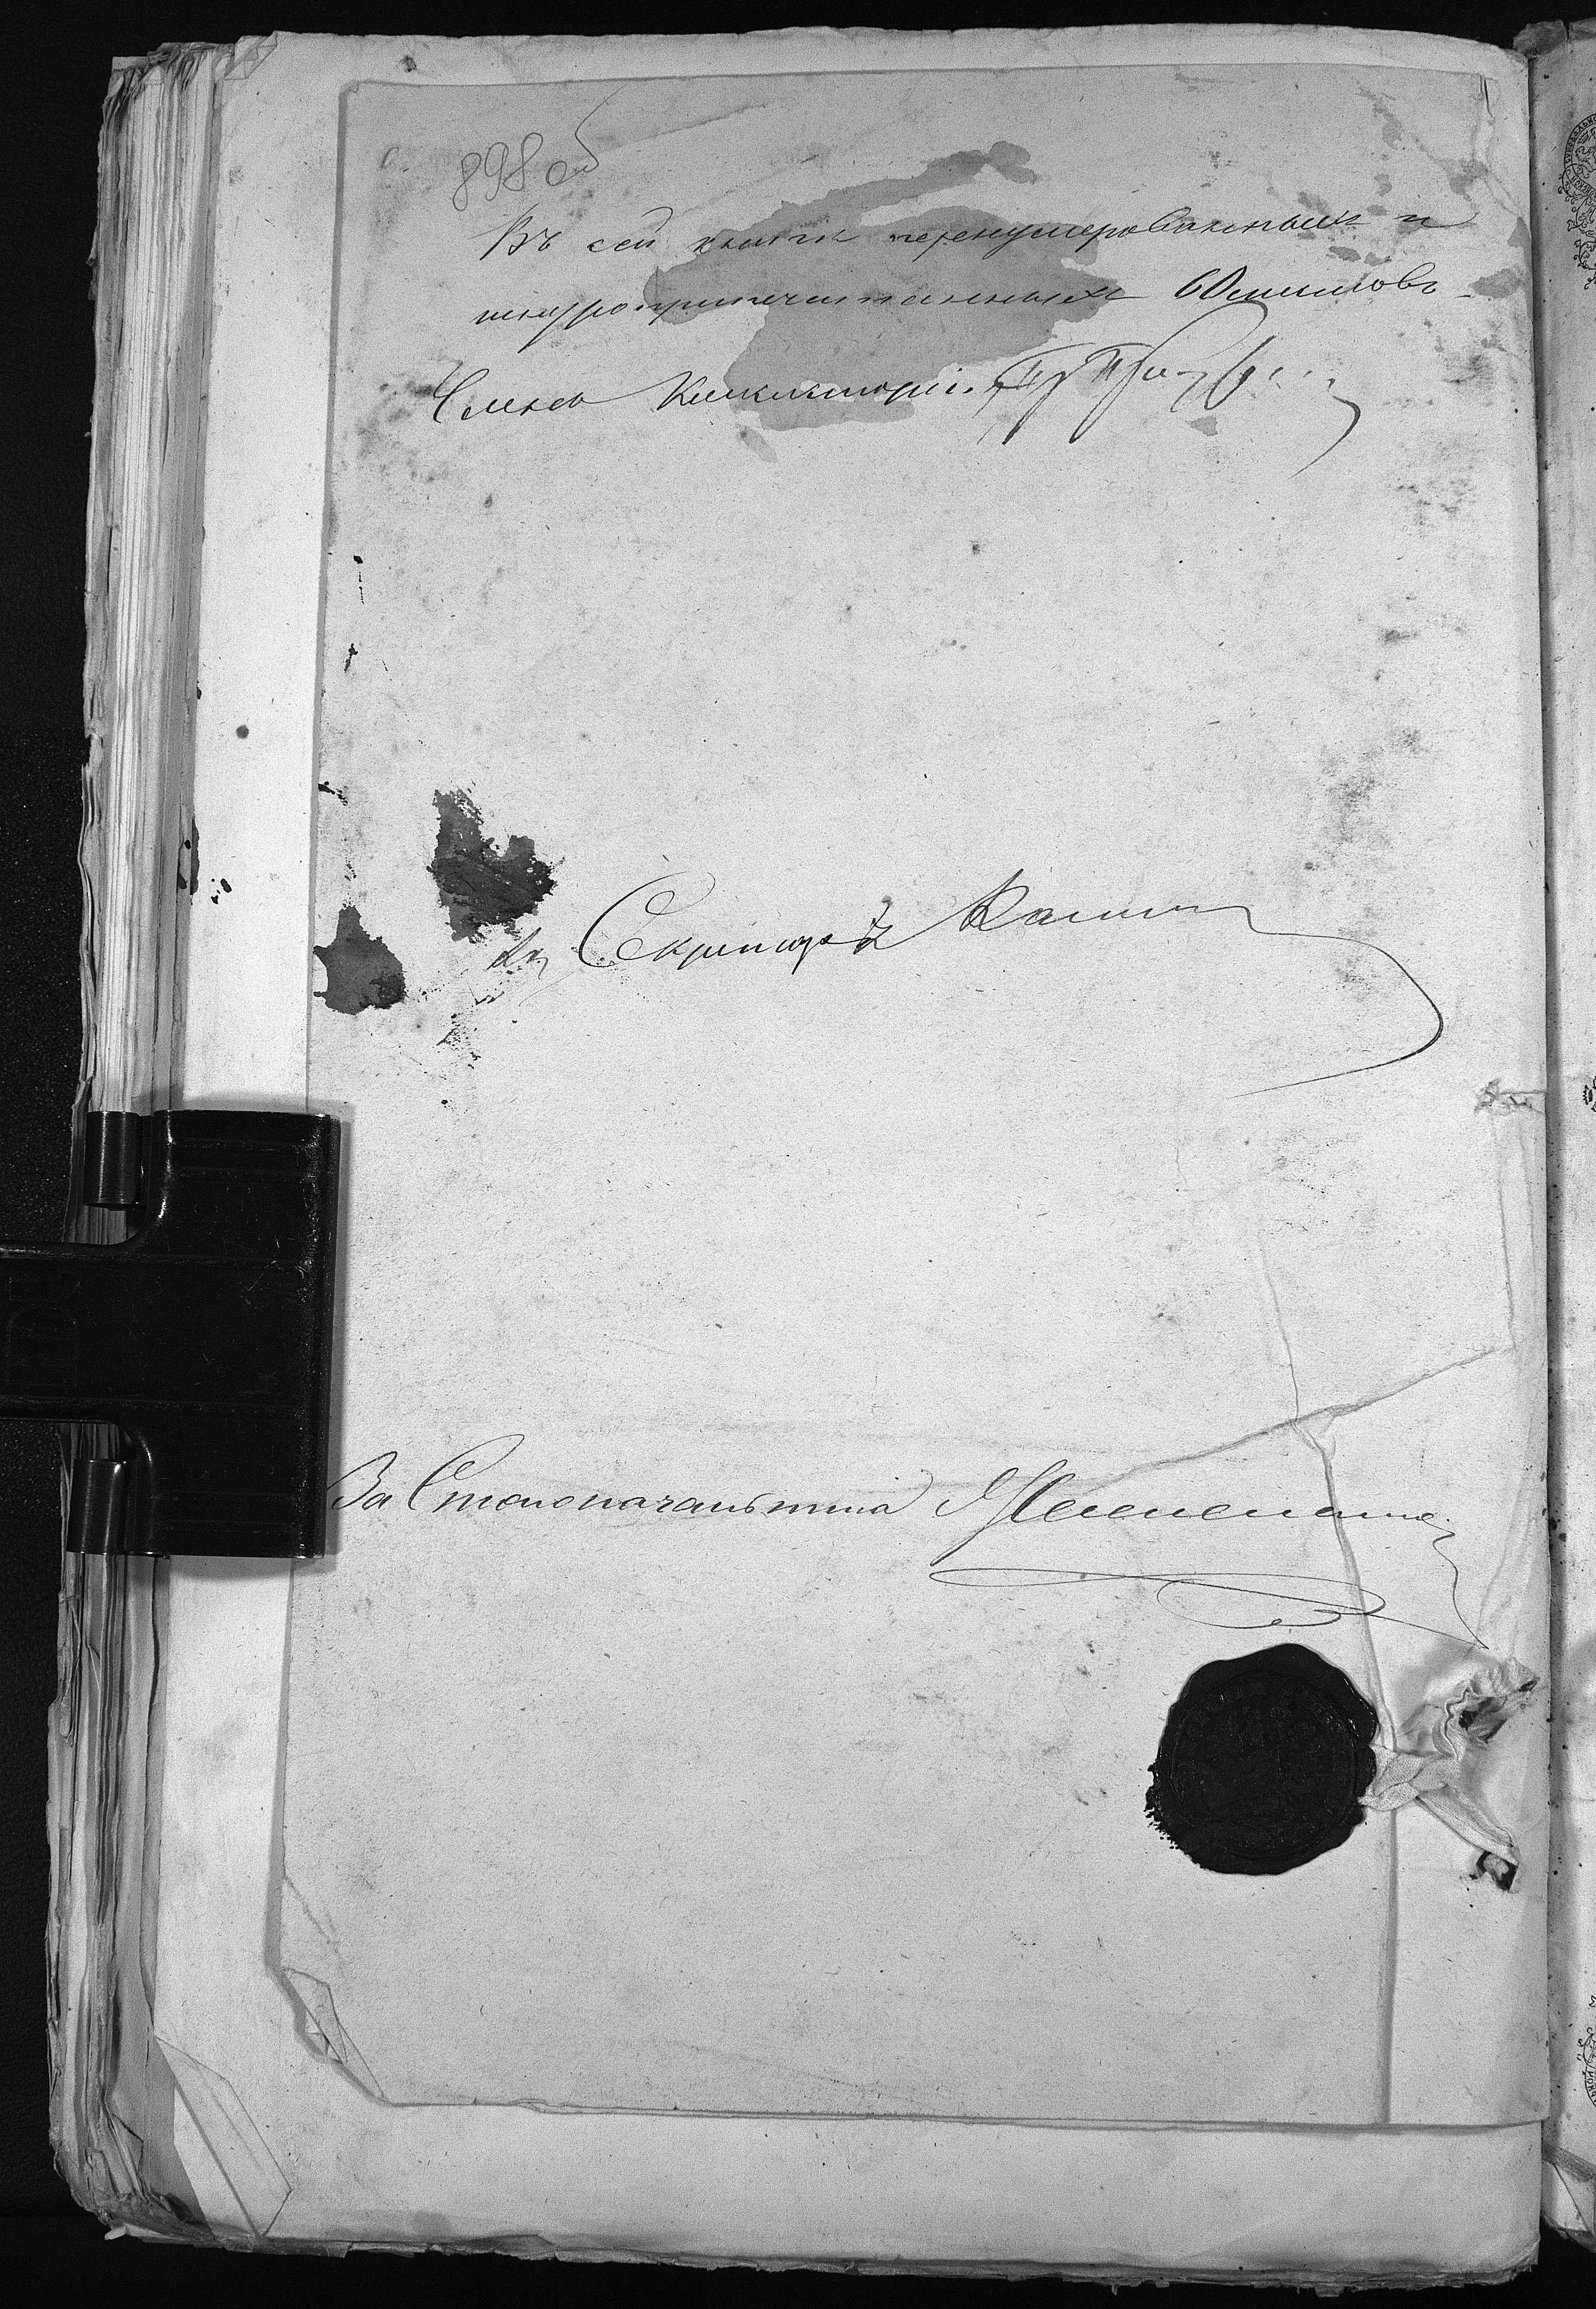 898 об
Въ сей книгѣ перенумерованныхъ и
шнуроприпечатанныхъ 60 листовъ
Членъ Консисторіи
Секретарь
За Столоначальника